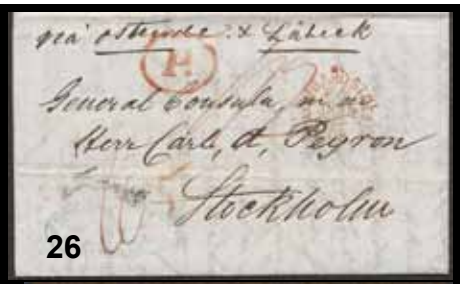 via Ostende & Lübeck
P.
General Consuln, m m.
Herr Carl, d, Peyron
Stockholm
26